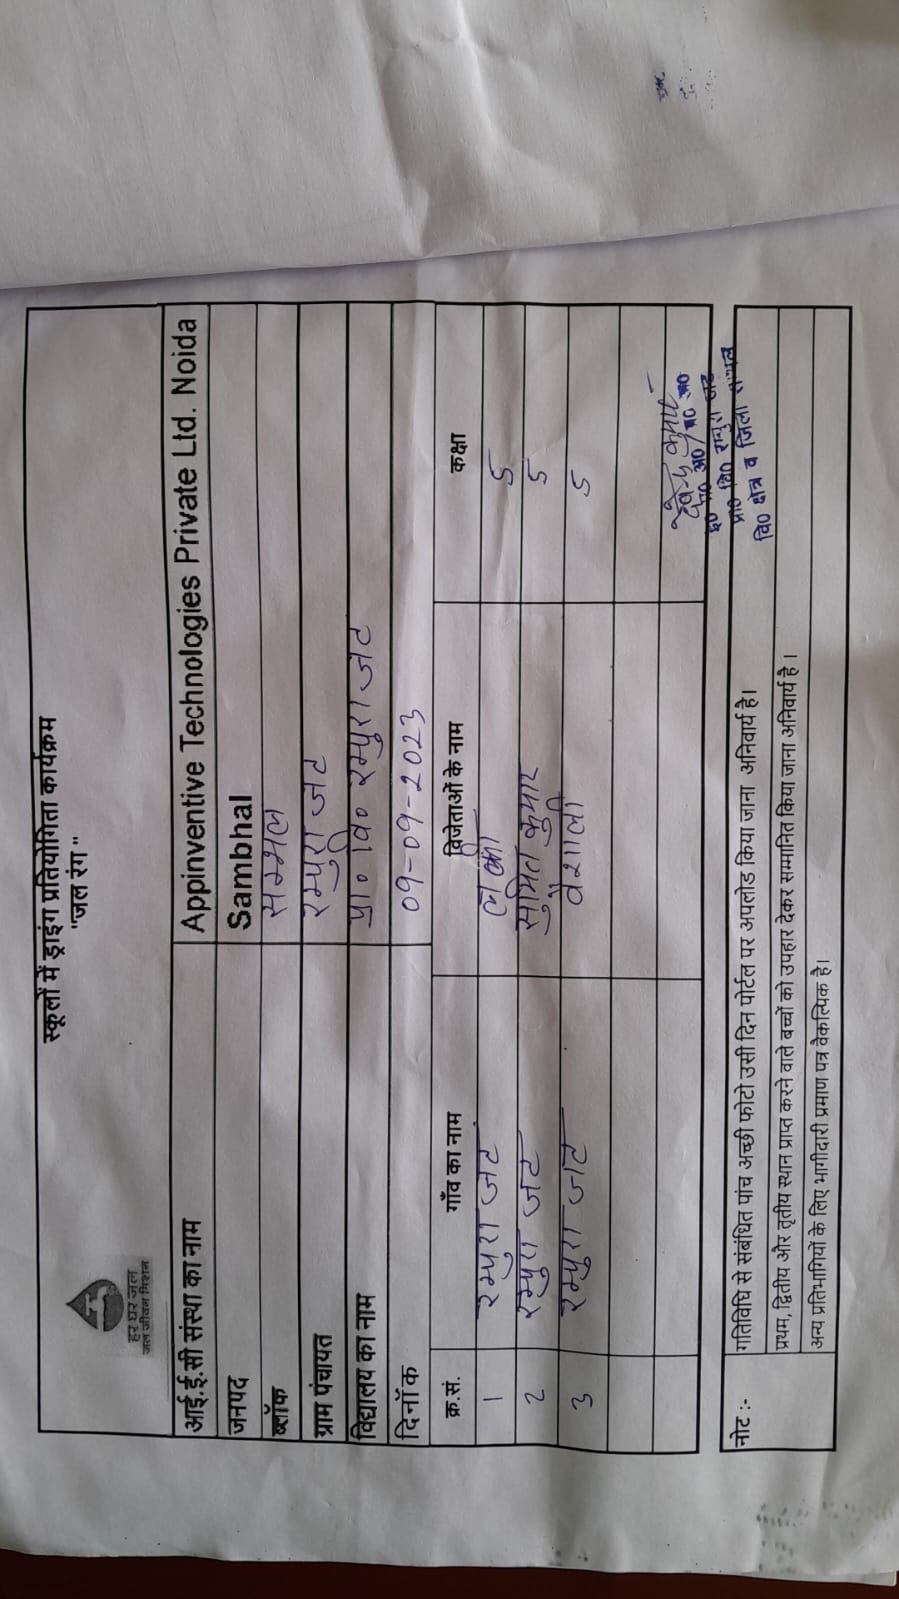 स्कूलों में ड्राइंग प्रतियोगिता कार्यक्रम
"जल रंग"
हर घर जल
जल जीवन मिशन
आई.ई.सी संस्था का नाम Appinventive Technologies Private Ltd. Noida
जनपद Sambhal
ब्लॉक सम्भल
ग्राम पंचायत रम्पुरा जट
विद्यालय का नाम प्रा० वि० रम्पुरा जट
दिनॉक 09-09-2023
क्र.सं. गाँव का नाम विजेताओं के नाम कक्षा
1 रम्पुरा जट 5
2 रम्पुरा जट सुमित कुमार 5
3 रम्पुरा जट वैशाली 5
वि० क्षेत्र व जिला
नोट :- गतिविधि से संबंधित पांच अच्छी फोटो उसी दिन पोर्टल पर अपलोड किया जाना अनिवार्य है।
प्रथम, द्वितीय और तृतीय स्थान प्राप्त करने वाले बच्चों को उपहार देकर सम्मानित किया जाना अनिवार्य है।
अन्य प्रतिभागियों के लिए भागीदारी प्रमाण पत्र वैकल्पिक है।